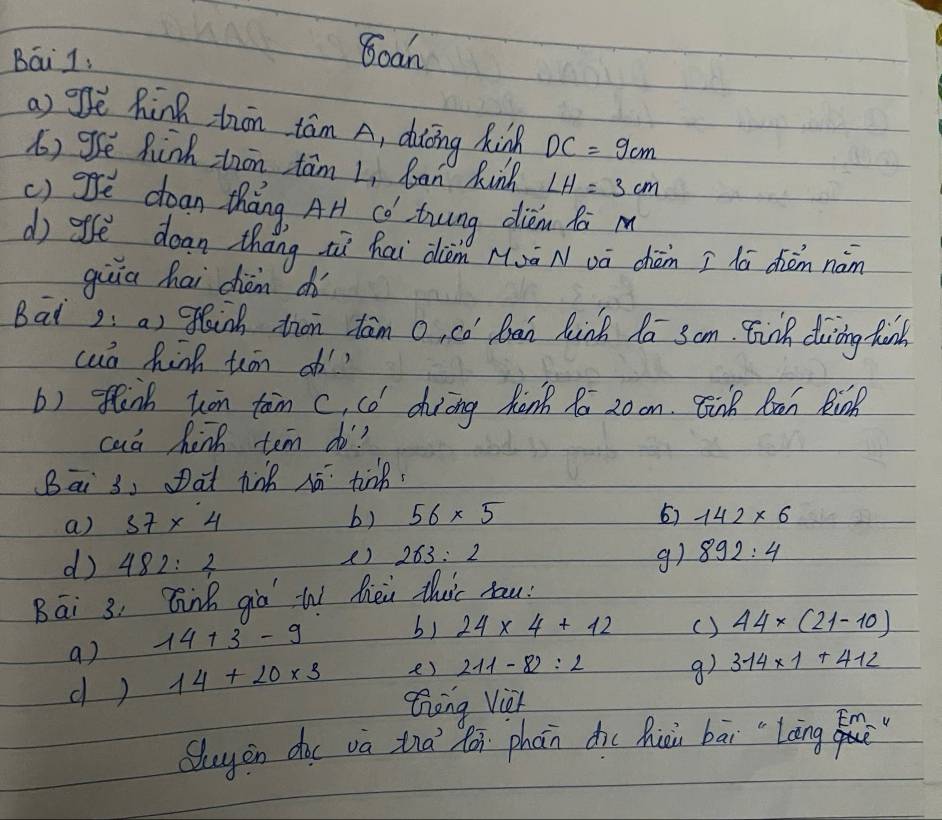 Toán
Bài 1:
a) Vẽ hình tròn tâm A, đường kính DC = 9cm
b) Vẽ hình tròn tâm L, bán kính LH = 3 cm
c) Vẽ đoạn thẳng AH có trung điểm là M
d) Vẽ đoạn thẳng từ hai điểm M và N và điểm I là điểm nằm
giữa hai điểm đó
Bài 2: a) Hình tròn tâm O, có bán kính là 3 cm. Tính đường kính
của hình tròn đó?
b) Hình tròn tâm C, có đường kính là 20 cm. Tính bán kính
của hình tròn đó?
Bài 3: Đặt tính rồi tính:
a) 37 × 4 b) 56 × 5 c) 142 × 6
d) 482 : 2 e) 263 : 2 g) 892 : 4
Bài 3: Tính giá trị biểu thức sau:
a) 14 + 3 - 9 b) 24 × 4 + 12 c) 44 × (21 - 10)
d) 14 + 20 × 3 e) 211 - 82 : 2 g) 314 × 1 + 412
Tiếng Việt
Luyện đọc và trả lời phần đọc hiểu bài "Làng Em"